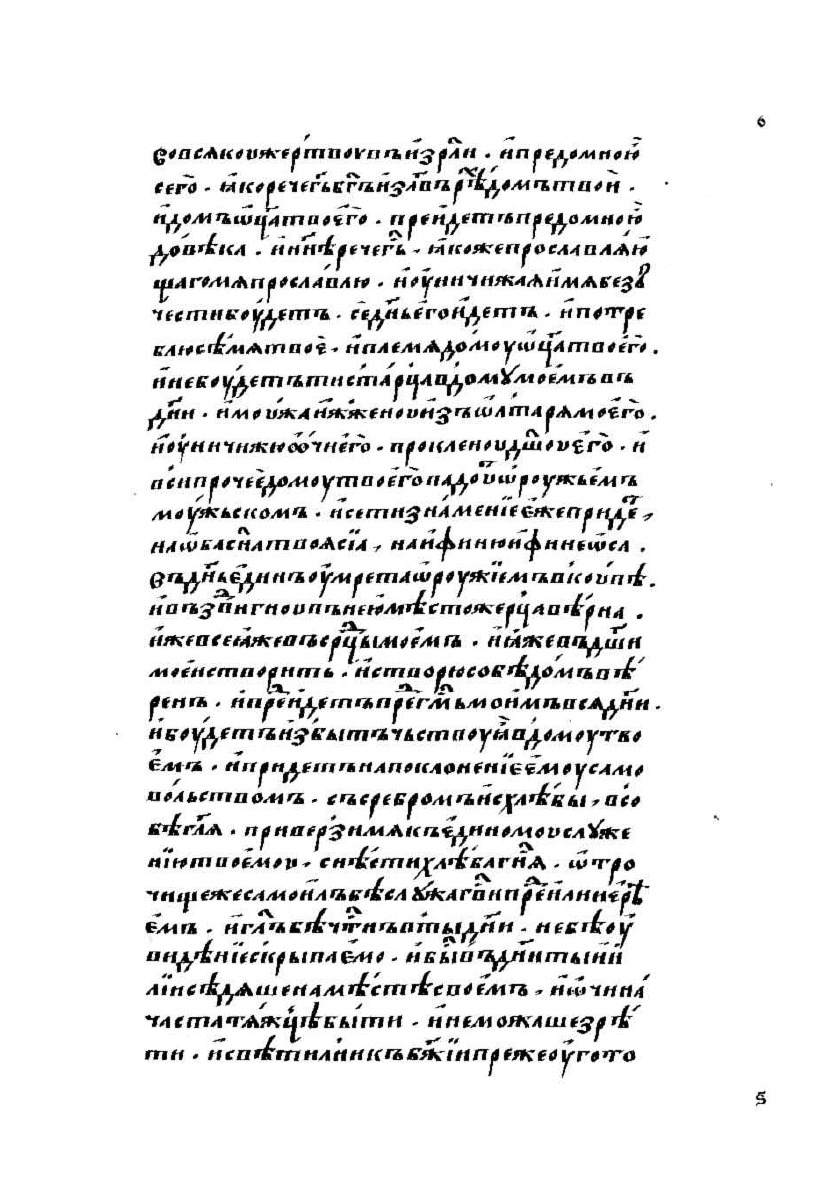 6
совсякоужертвоувъизр҃ли · ипредомною
сего · ꙗкоречегь҃бг҃ъизл҃въ рѣ домътвои ·
идомъѿц҃атвоего · преидетъпредомною
довѣка · инн҃ѣречегь҃ · ꙗкожепрославляю
щагомяпрославлю · иоуничижаяимябезъ
честибоудетъ · седн҃ьегоидетъ · ипотре
блюсѣмятвое · иплемядомоуѿц҃атвоего ·
инебоудетътистарцавдомꙋмоемъвъ
дн҃и · имоужаиꙗженоуизъѡлтарямоего ·
иоуничижюочиего · прокленоудш҃оуего · и
всипрочеедомоутвоегопадоутьѿроужьемъ
моужьскомъ · исетизнамениеежеприде,
наѡбасн҃атвоясиа, наифиниюифинеѡса ·
Въдн҃ьединъоумретаѿроужиемъвкоупѣ ·
ивъздвигноувънеюмѣстожерцавѣрна ·
ижевсеꙗжевъсрц҃ымоемъ · иꙗжевъдш҃и
моеистворить · истворюсобѣдомъвѣ
ренъ · ипреидетъпрегм҃ьмоимъвсядн҃и ·
ибоудетъизбытъчьствоуꙗвдомоутво
емъ · ипридетънапоклонениеемоусамо
вольствомъ · съсребромъисхлѣбы, всо
бѣгл҃я · приверзимякъединомоуслꙋже
ниютвоемоу · снѣстихлѣбагн҃я · ѿтро
чищежесамоилъбѣслꙋжагв҃ипреилииерѣ
емъ · игл҃ъбѣчт҃нъвтыдн҃и · небѣоу
видѣниескрываемо · ибы҃въдн҃итыии
лиисѣдяшенамѣстѣсвоемъ, иѡчина
частатяжцѣбыти · инеможашезрѣ
ти · исвѣтилникъбж҃иипрежеоугото
ѕ